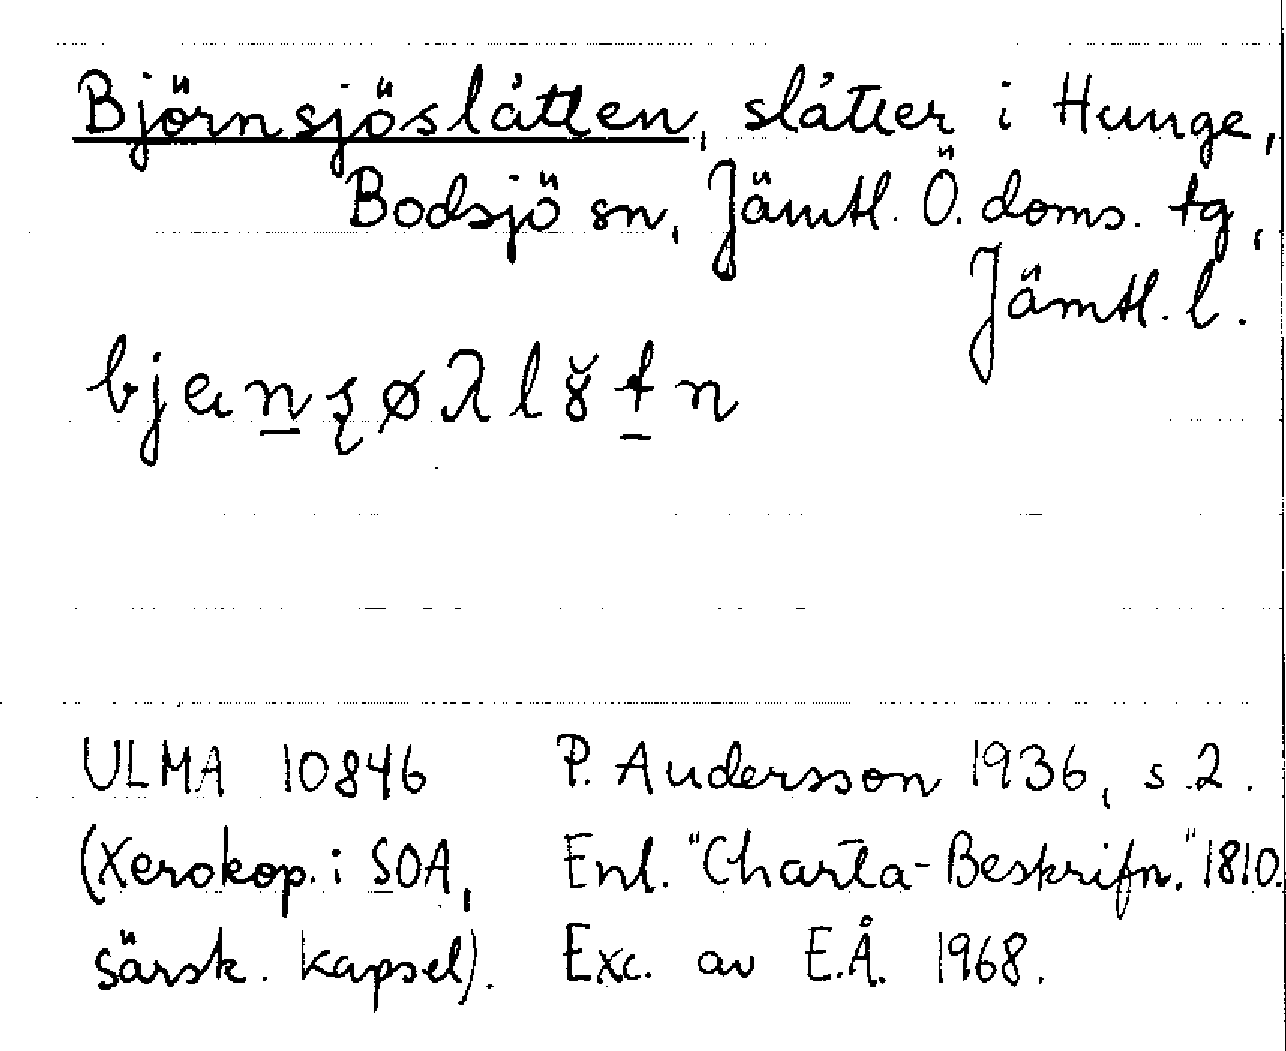 Björnsjöslåtten, slåtter i Hunge,
Bodsjö sn, Jämtl. Ö. doms. tg,
Jämtl. l.
ULMA 10846 P. Andersson 1936, s. 2.
(Xerokop. i SOA, Enl. "Charta-Beskrifn." 1810.
särsk. kapsel). Exc. av E.Å. 1968.